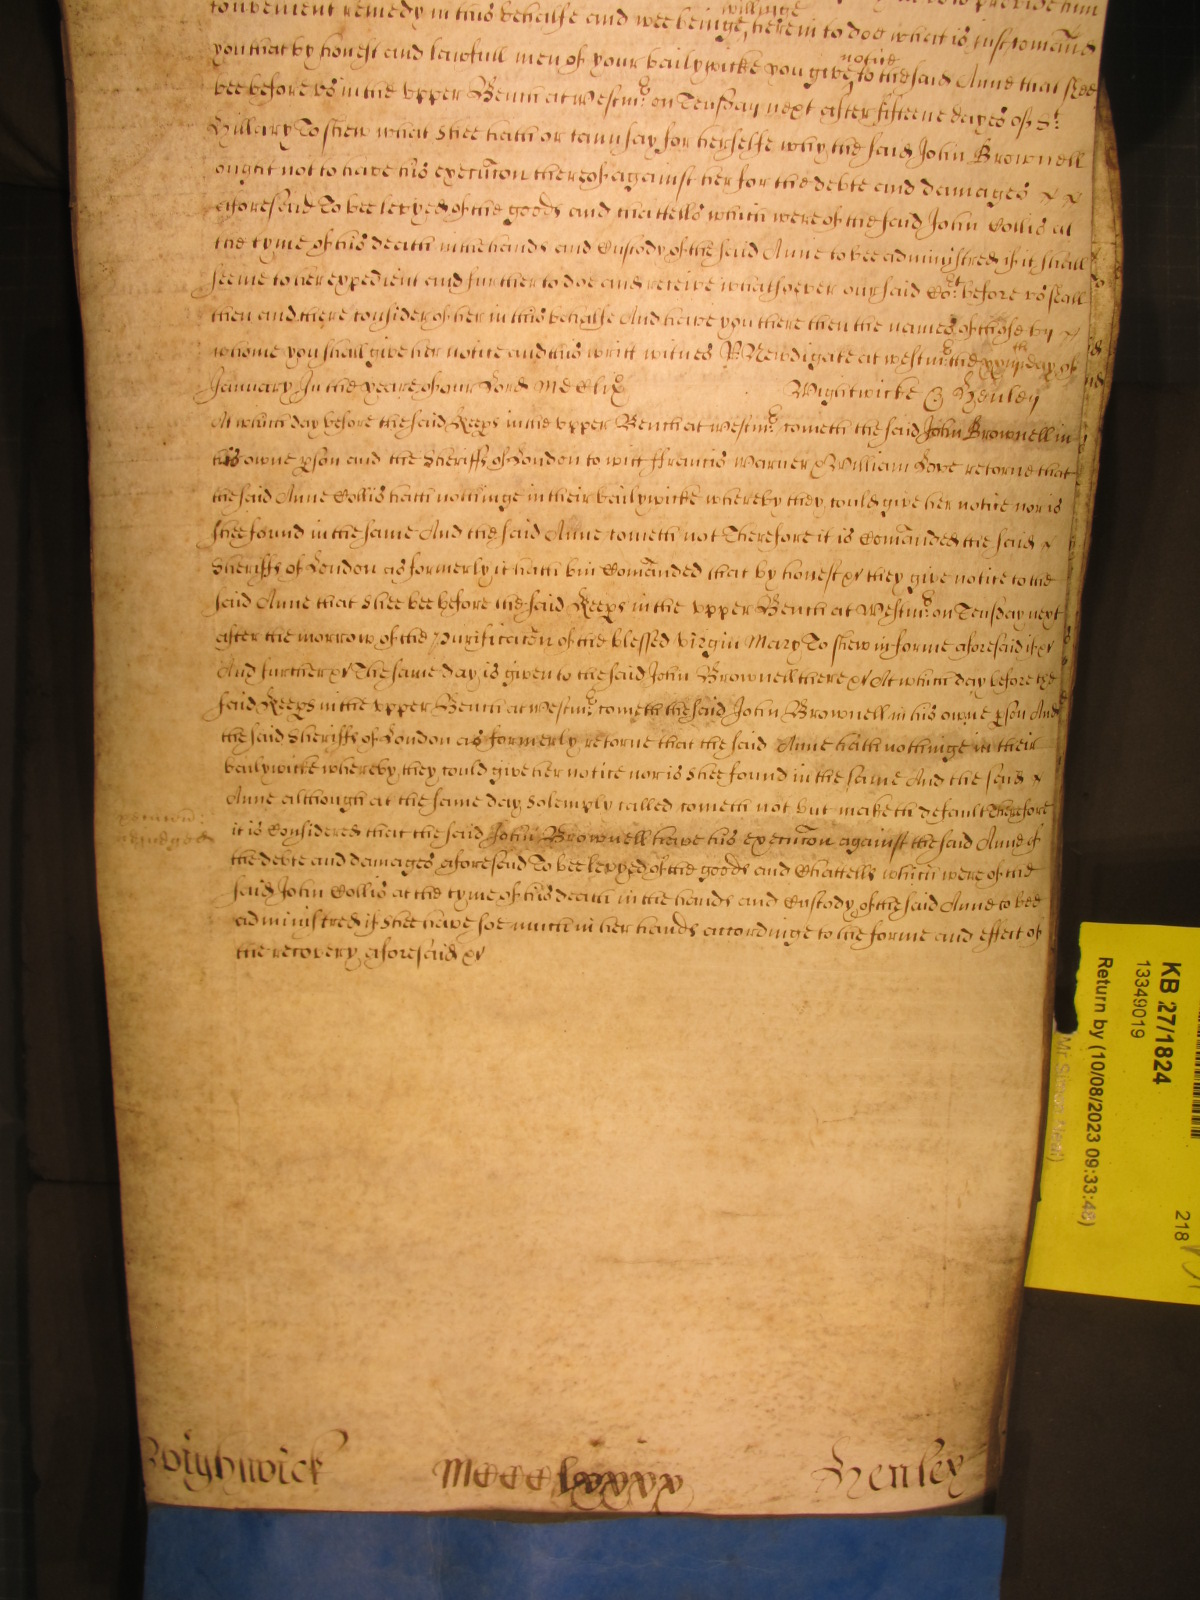 convenient remedy in this behalfe and wee beinge willinge herein to doe what is just comand
you that by honest and lawfull men of your bailywicke you give notice to the said Anne that shee
bee before us in the upper Bench at Westmr. on Teusday next after fifteene dayes of St.
Hillary To shew what shee hath or can say for herselfe why the said John Brownell
ought not to have his execucon thereof against her for the debte and damages
aforesaid To bee levyed of the goods and chattells which were of the said John Collis at
the tyme of his death in the hands and Custody of the said Anne to bee administred if it shall
seeme to her expedient and further to doe and receive whatsoever our said Cot. before us shall
then and there consider of her in this behalfe And have you there then the names of those by
whome you shall give her notice and this writt witnes R Newdigate at westmr. the day of
January In the yeare of our Lord MDClix Wightwicke & Henley
At which day before the said Keeps in the upper Bench at Westmr. cometh the said John Brownell in
his owne pson and the Sheriffs of London to witt ffrancis Warner & William Love retorne that
the said Anne Collis hath nothinge in their bailywicke whereby they could give her notice nor is
shee found in the same And the said Anne cometh not Therefore it is Comanded the said
Sheriffs of London as formerly it hath bin Comanded that by honest &c they give notice to the
said Anne that shee bee before the said Keeps in the upper Bench at Westmr. on Teusday next
after the morrow of the purificacon of the blessed virgin Mary To shew in forme aforesaid if &c
And further &c The same day is given to the said John Brownell there &c At which day before the
said Keeps in the upper Bench at Westmr. cometh the said John Brownell in his owne pson And
the said Sheriffs of London as formerly retorne that the said Anne hath nothinge in their
bailywicke whereby they could give her notice nor is shee found in the same And the said
Anne although at the same day solemply called cometh not but maketh default Therefore
it is Considered that the said John Brownell have his execucon against the said Anne of
the debte and damages aforesaid To bee levyed of the goods and Chattells which were of the
said John Collis at the tyme of his death in the hands and Custody of the said Anne to bee
administred if shee have soe much in her hands accordinge to the forme and effect of
the recovery aforesaid &c
Wightwick MCCClxxxx Henley
KB 27/1824
13349019
Return by (10/08/2023 09:33:48)
218